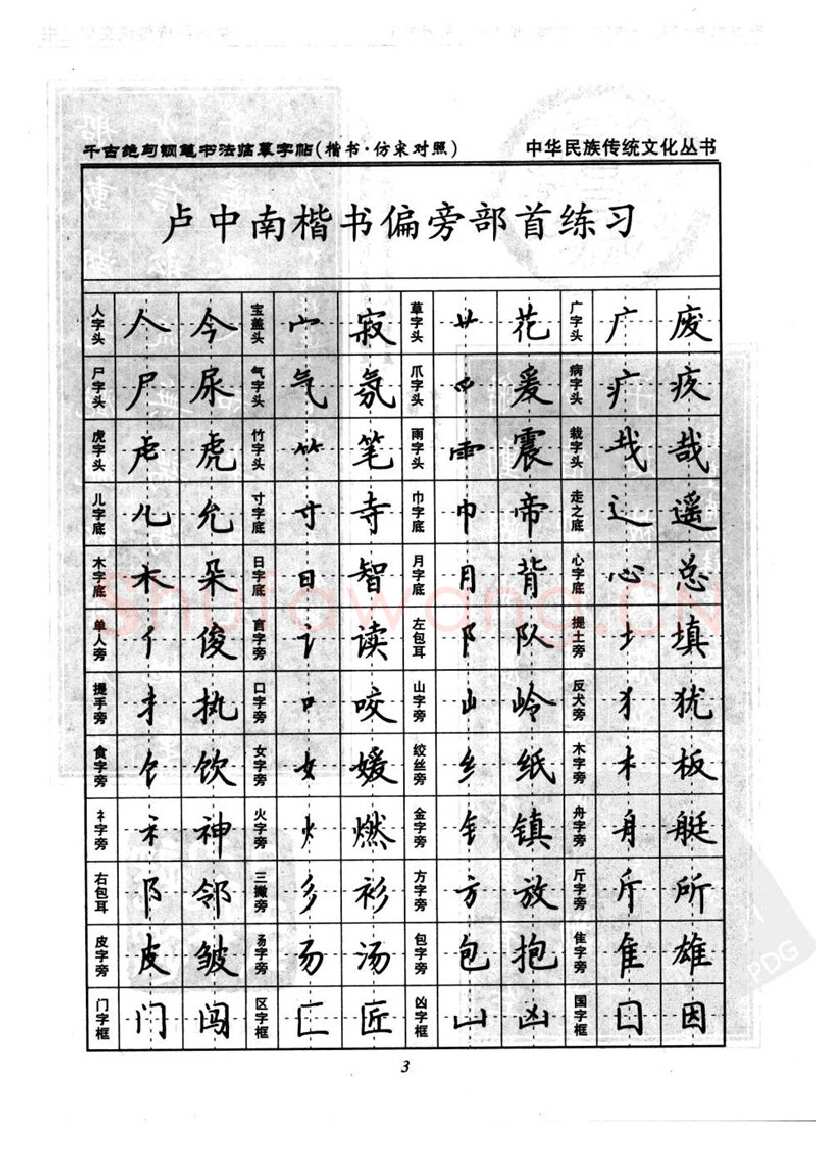 千古绝句钢笔书法临摹字帖(楷书·仿宋对照) 中华民族传统文化丛书
卢中南楷书偏旁部首练习
人字头 人 今 宝盖头 宀 寂 草字头 艹 花 广字头 广 废
尸字头 尸 尿 气字头 气 氛 爪字头 爫 爰 病字头 疒 疫
虎字头 虍 虎 竹字头 ⺮ 笔 雨字头 雨 震 栽字头 𢦏 哉
儿字底 儿 允 寸字底 寸 寺 巾字底 巾 帝 走之底 辶 遥
木字底 木 朵 日字底 日 智 月字底 月 背 心字底 心 总
单人旁 亻 俊 言字旁 讠 读 左包耳 阝 队 提土旁 土 填
提手旁 扌 执 口字旁 口 咬 山字旁 山 岭 反犬旁 犭 犹
食字旁 饣 饮 女字旁 女 媛 绞丝旁 纟 纸 木字旁 木 板
礻字旁 礻 神 火字旁 火 燃 金字旁 钅 镇 舟字旁 舟 艇
右包耳 阝 邻 三撇旁 彡 衫 方字旁 方 放 斤字旁 斤 所
皮字旁 皮 皱 汤 包字旁 包 抱 隹字旁 隹 雄
门字框 门 闯 区字框 匚 匠 凶字框 凵 凶 国字框 囗 因
3
Shufawang.CN
PDG